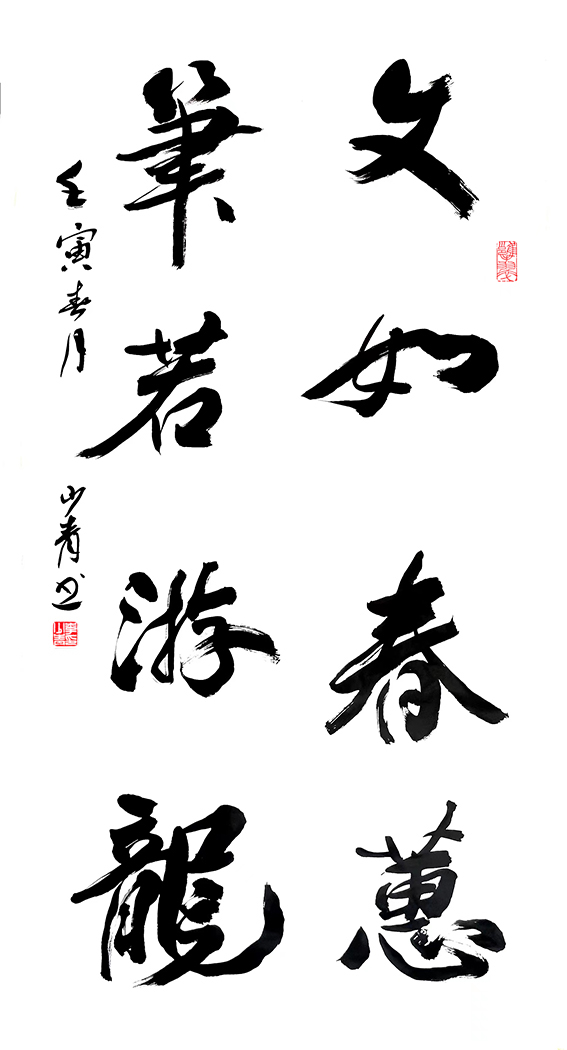 文如春蕙
筆若游龍
壬寅春月
山青书